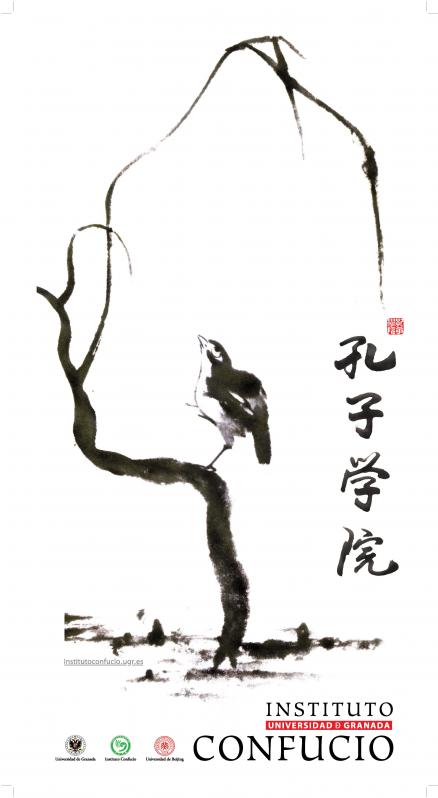 孔子学院
institutoconfucio.ugr.es
INSTITUTO
UNIVERSIDAD D GRANADA
CONFUCIO
Universidad de Granada
Instituto Confucio
Universidad de Beijing